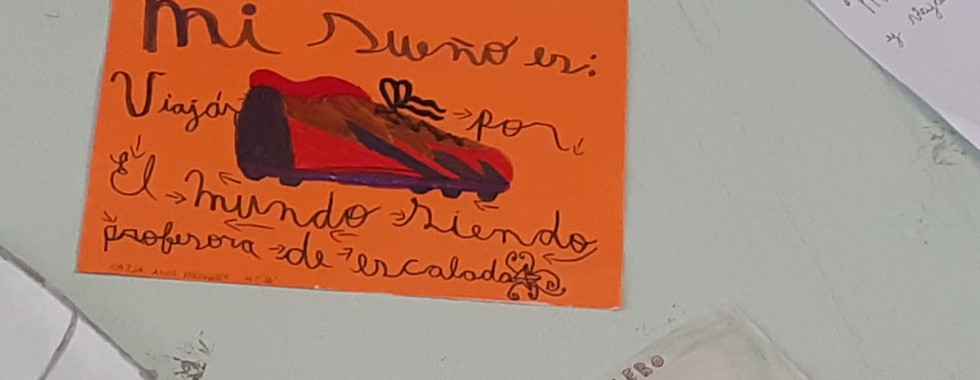 mi sueño es:
Viajár por
El mundo siendo
profesora de escalada
y viaja
ERO